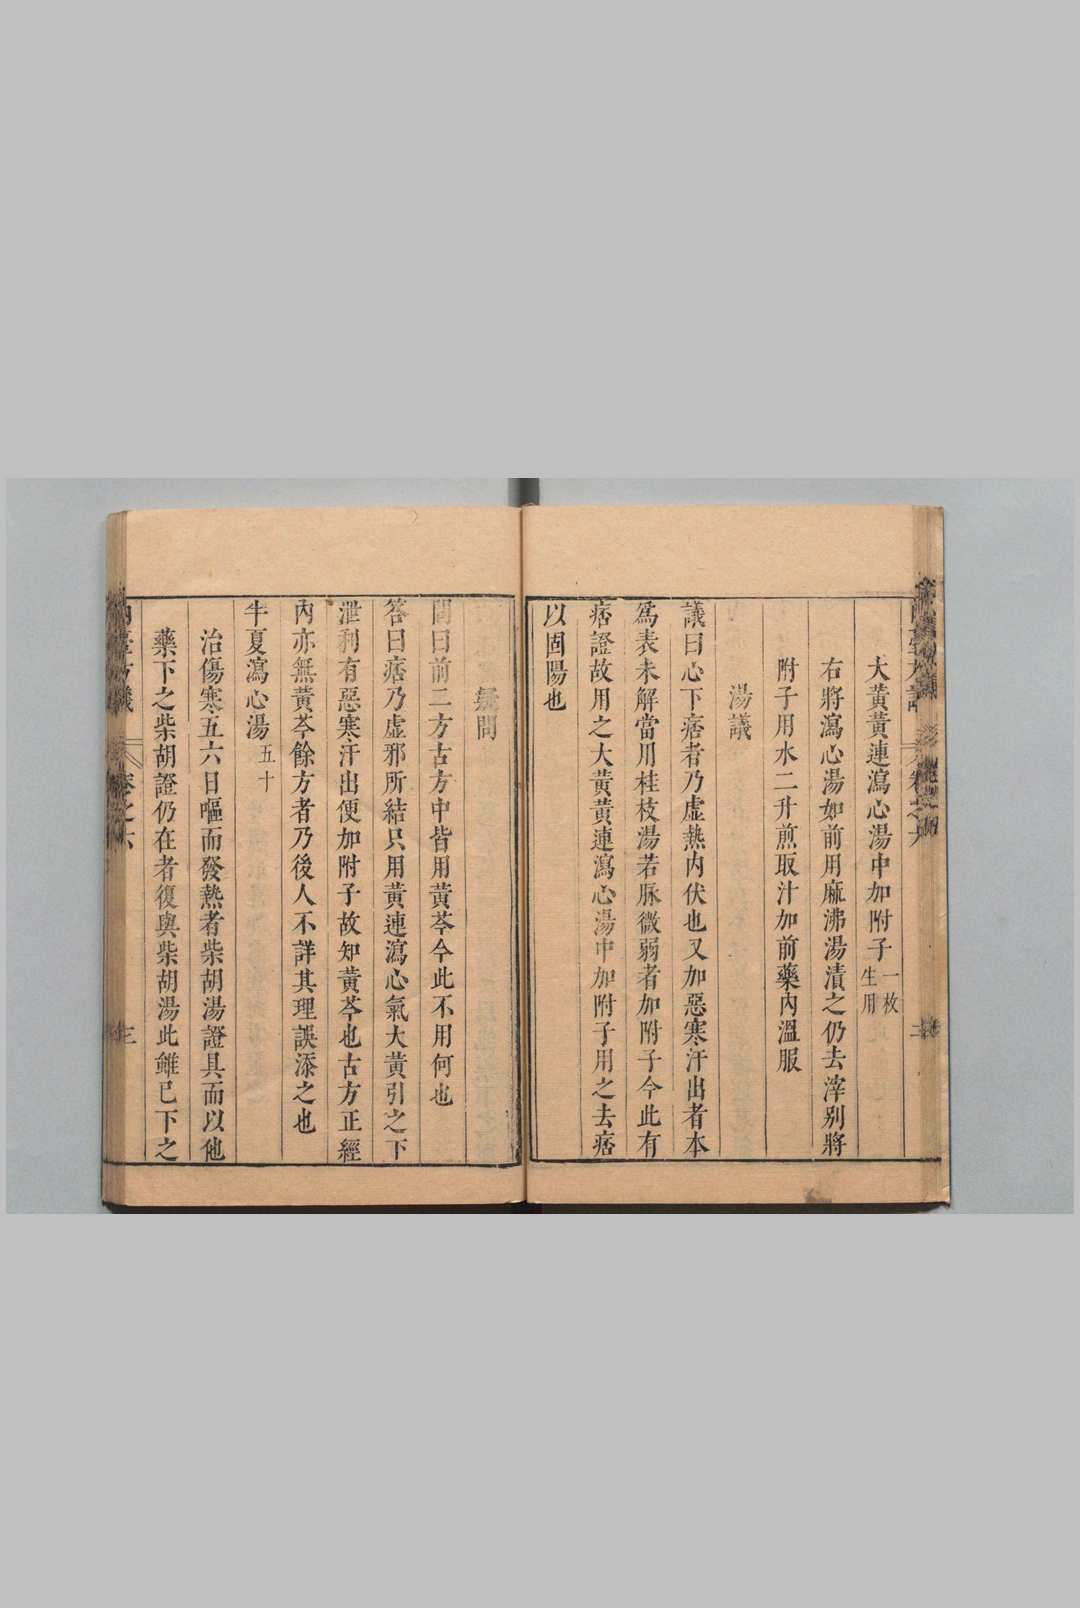 大黃黃連瀉心湯中加附子一枚生用
右將瀉心湯如前用麻沸湯漬之仍去滓別將
附子用水二升煎取汁加前藥內溫服
湯議
議曰心下痞者乃虛熱內伏也又加惡寒汗出者本
爲表未解當用桂枝湯若脉微弱者加附子今此有
痞證故用之大黃黃連瀉心湯中加附子用之去痞
以固陽也
疑問
問曰前二方古方中皆用黃芩今此不用何也
答曰痞乃虛邪所結只用黃連瀉心氣大黃引之下
泄利有惡寒汗出便加附子故知黃芩也古方正經
內亦無黃芩餘方者乃後人不詳其理誤添之也
半夏瀉心湯五十
治傷寒五六日嘔而發熱者柴胡湯證具而以他
藥下之柴胡證仍在者復與柴胡湯此雖已下之
內臺方議 卷之六 三